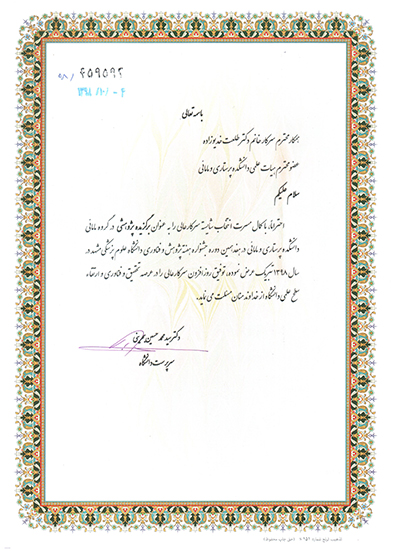 ۵۸/ ۴۵۹۵۹۲
۱۳۹۸/۱۰/۰۴
باسمه تعالی
همکار محترم سرکار خانم دکتر طلعت خدیوزاده
عضو محترم هیات علمی دانشکده پرستاری و مامایی
سلام علیکم
احتراما، با کمال مسرت انتخاب شایسته سرکارعالی را به عنوان برگزیده پژوهشی در گروه مامائی
دانشکده پرستاری و مامایی در هفدهمین دوره جشنواره هفته پژوهش و فناوری دانشگاه علوم پزشکی مشهد در
سال ۱۳۹۸ تبریک عرض نموده، توفیق روزافزون سرکارعالی را در عرصه تحقیق و فناوری و ارتقاء
سطح علمی دانشگاه از خداوند منان مسئلت می نماید.
دکتر سید محمد حسین بحرینی
سرپرست دانشگاه